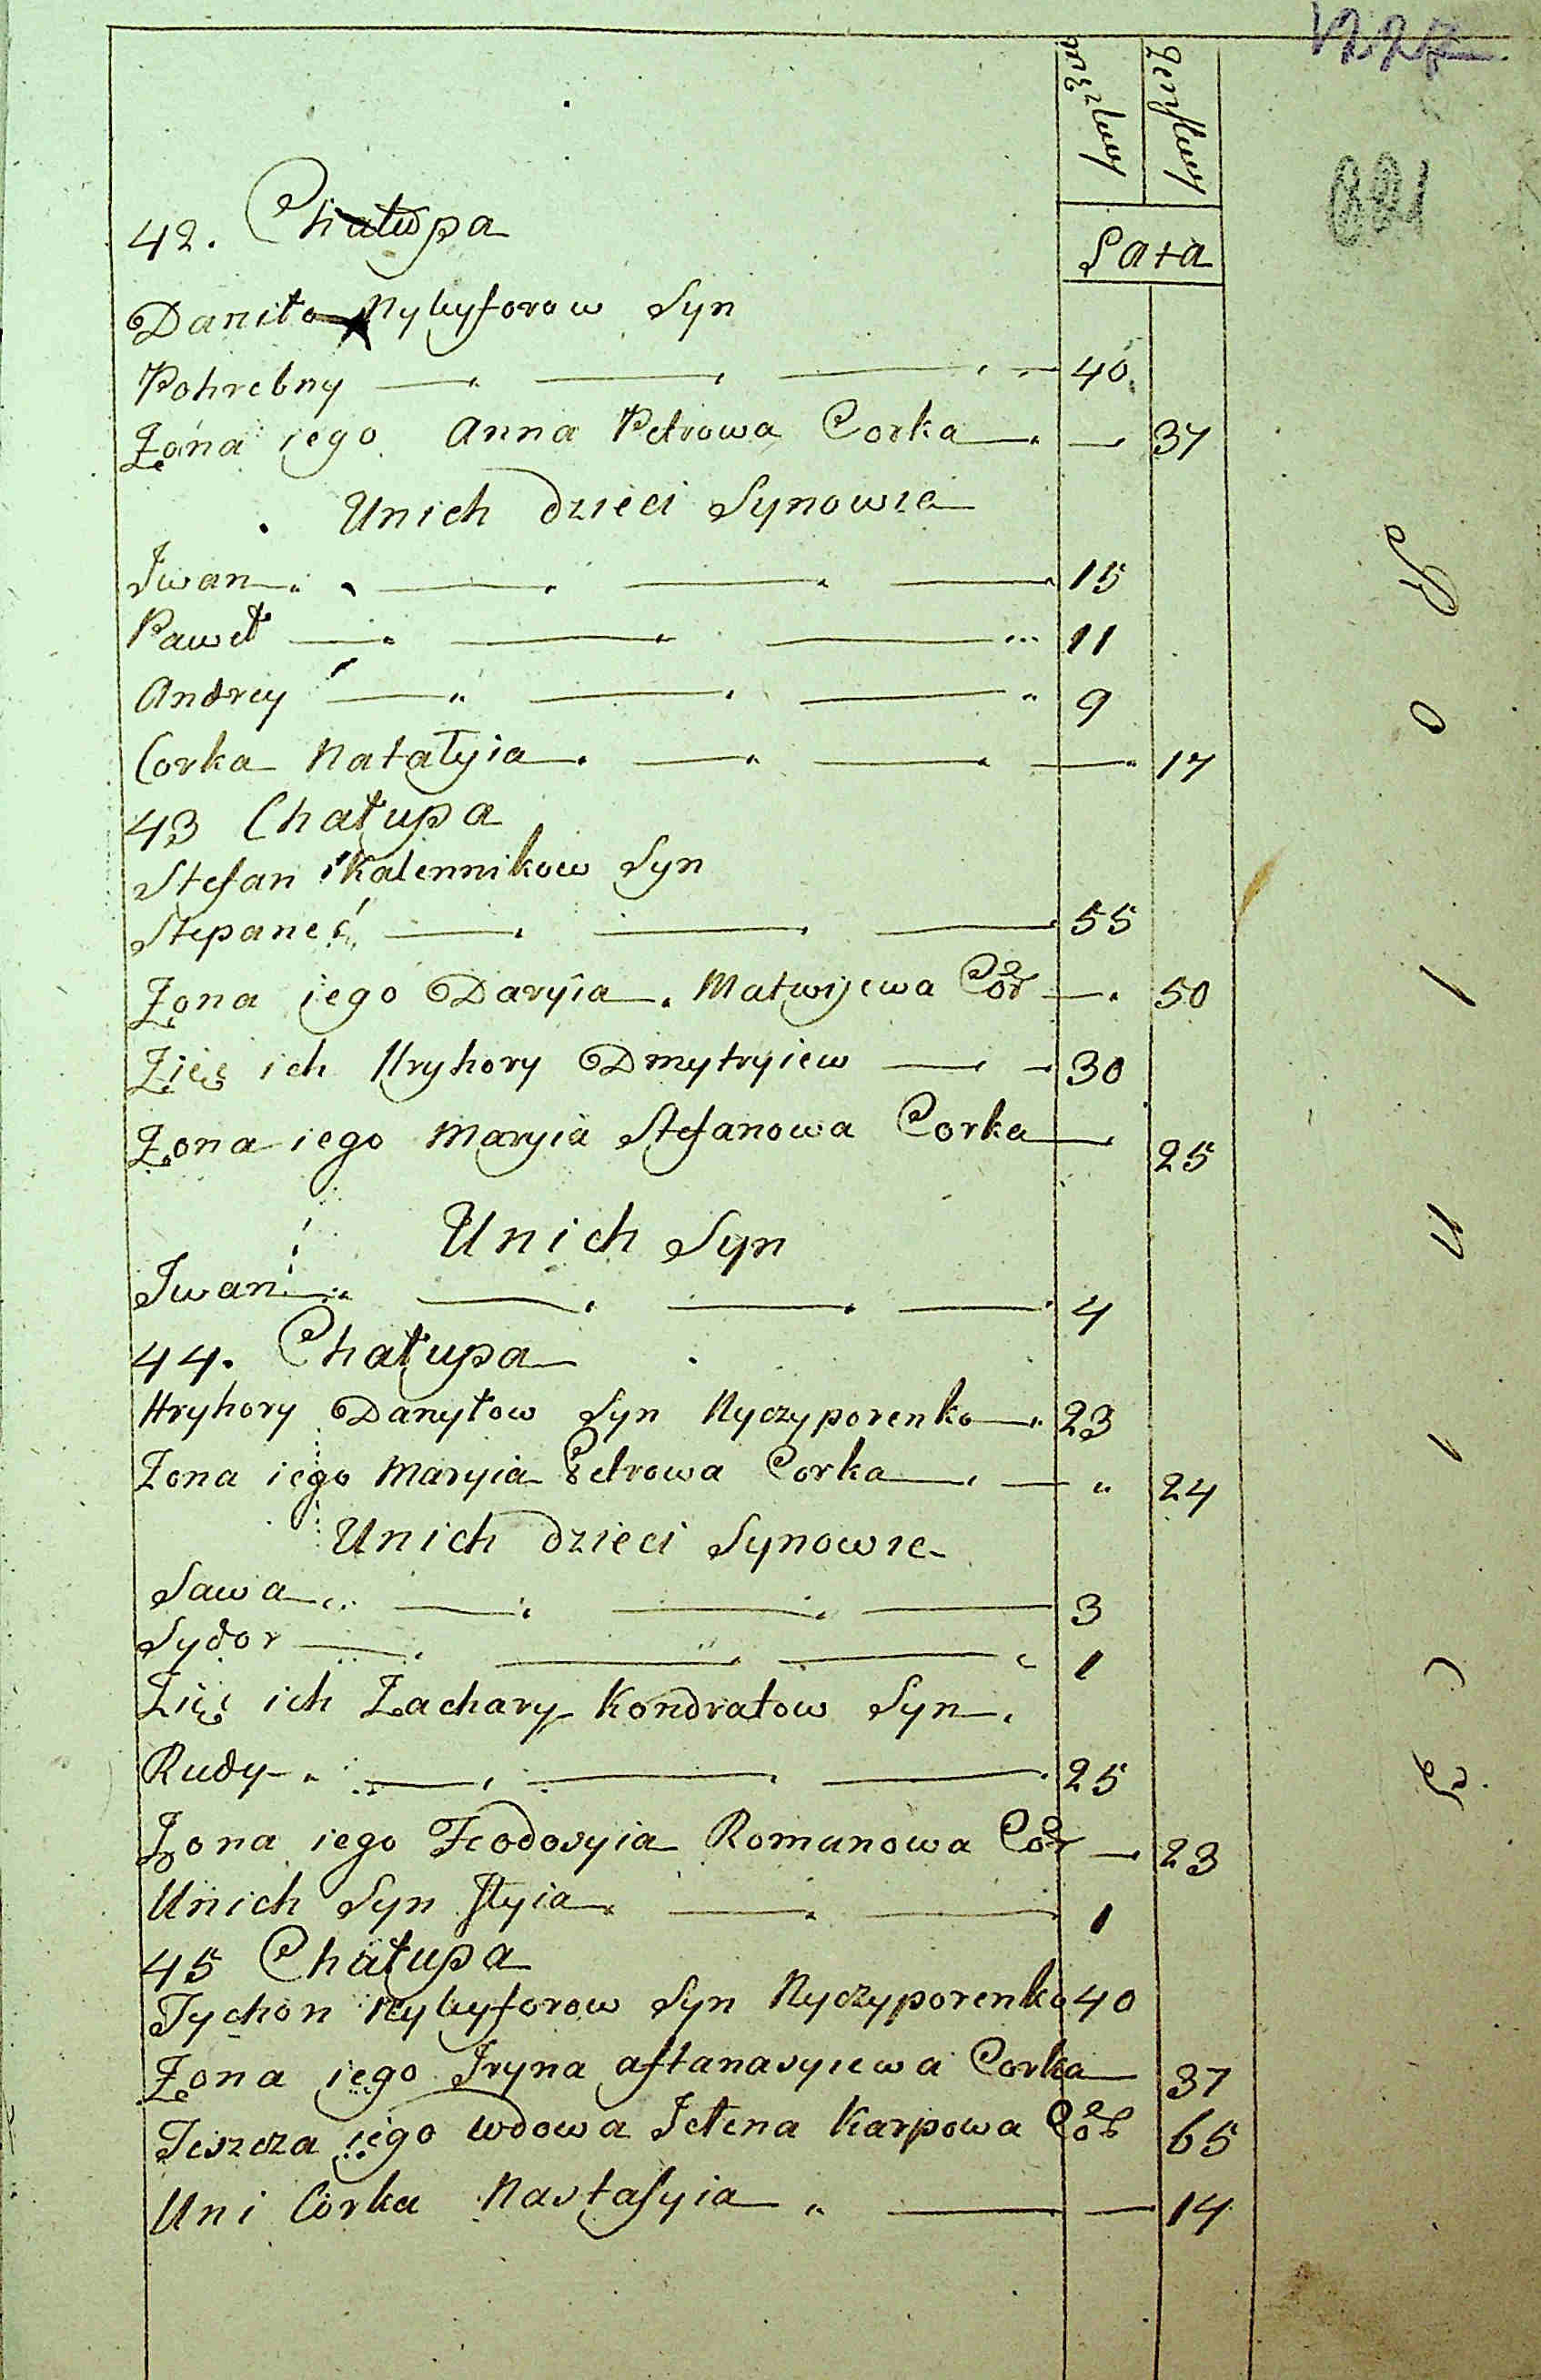 męzkuy żenskuy
Lata
42. Chałupa
Daniło Nykyforow Syn
Pohrebny — — — 40
Zona iego Anna Petrowa Corka — — 37
Unich dzieci Synowie
Iwan — — — 15
Paweł — — — 11
Andrey — — — 9
Corka Natałyia — — — 17
43 Chałupa
Stefan Kalennikow Syn
Stepaneć — — — 55
Zona iego Daryia Matwijewa Cor — 50
Zięć ich Hryhory Dmytryiew — — 30
Zona iego Maryia Stefanowa Corka — 25
Unich Syn
Iwan — — — 4
44. Chałupa
Hryhory Danyłow Syn Nyczyporenko — 23
Zona iego Maryia Petrowa Corka — — " 24
Unich dzieci Synowie
Sawa — — — 3
Sydor — — — 1
Zięć ich Zachary Kondratow Syn
Rudy — — — 25
Zona iego Feodosyia Romanowa Cor — 23
Unich Syn Iłyia — — 1
45 Chałupa
Tychon Nykyforow Syn Nyczyporenko 40
Zona iego Iryna aftanasyiewa Corka — 37
Teszcza iego wdowa Jełena Karpowa Cor 65
Uni Corka Nastasyia — — 14